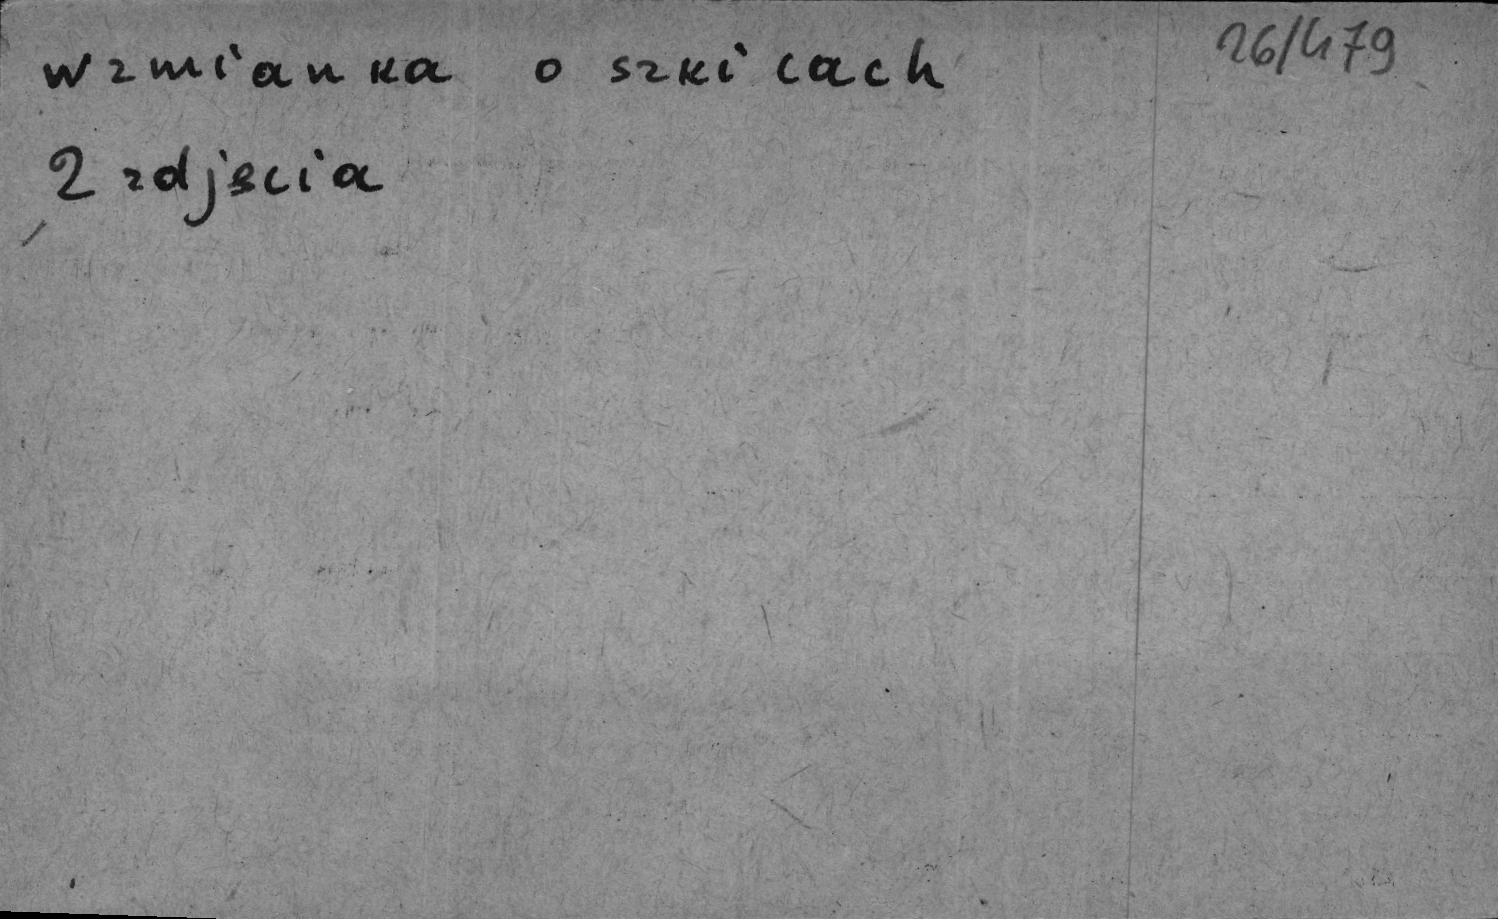 wzmianka o szkicach
26/479
2 zdjęcia